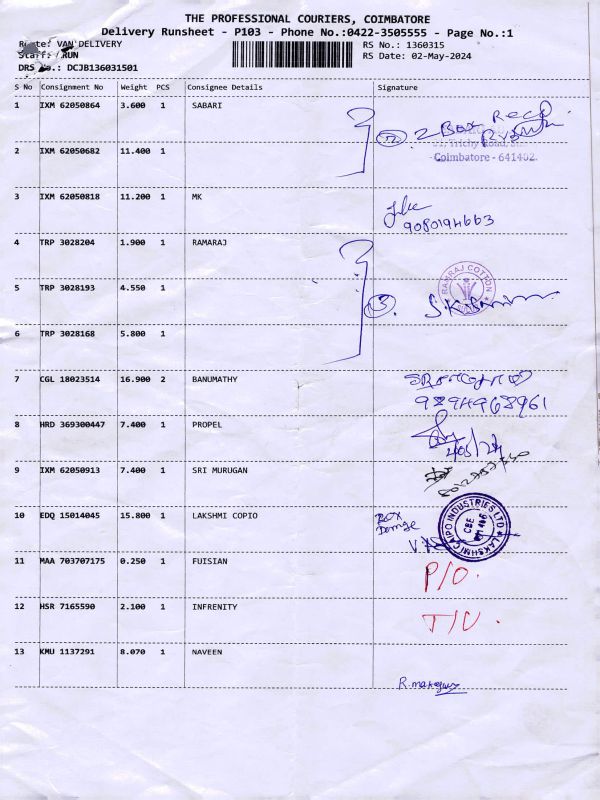 THE PROFESSIONAL COURIERS, COIMBATORE
Delivery Runsheet - P103 - Phone No.:0422-3505555 - Page No.:1
Route: VAN DELIVERY RS No.: 1360315
RUN RS Date: 02-May-2024
DRS No.: DCJB136031501
S No Consignment No Weight PCS Consignee Details Signature
1 IXM 62050864 3.600 1 SABARI
2 Box Recd
Trichy Road,
Coimbatore - 641402.
2 IXM 62050682 11.400 1
3 IXM 62050818 11.200 1 MK
9080194663
4 TRP 3028204 1.900 1 RAMARAJ
RAMRAJ COTTON
5 TRP 3028193 4.550 1
3.
6 TRP 3028168 5.800 1
7 CGL 18023514 16.900 2 BANUMATHY
9894968961
8 HRD 369300447 7.400 1 PROPEL
9 IXM 62050913 7.400 1 SRI MURUGAN
10 EDQ 15014045 15.800 1 LAKSHMI COPIO
BOX
LAKSHMI CAIPO INDUSTRIES LTD
CBE
11 MAA 703707175 0.250 1 FUISIAN
P/O.
12 HSR 7165590 2.100 1 INFRENITY
13 KMU 1137291 8.070 1 NAVEEN